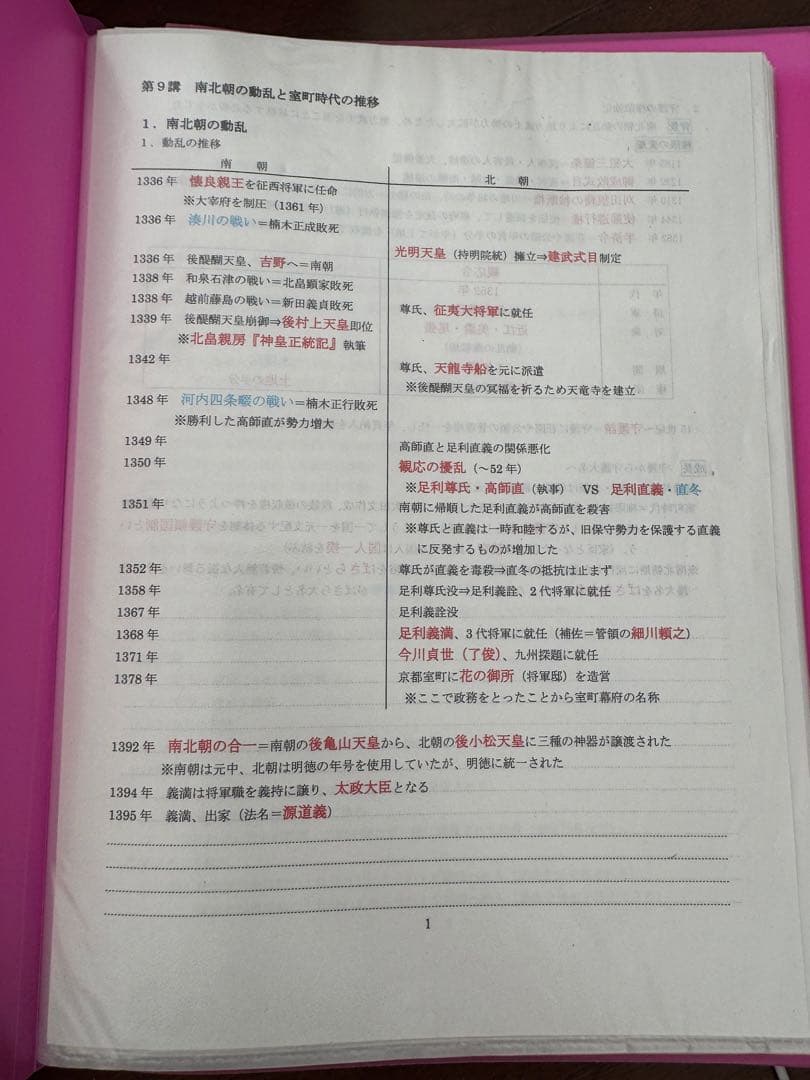 第9講 南北朝の動乱と室町時代の推移
1．南北朝の動乱
1．動乱の推移
南 朝 北 朝
1336年 懐良親王を征西将軍に任命
※大宰府を制圧（1361年）
1336年 湊川の戦い＝楠木正成敗死
光明天皇（持明院統）擁立⇒建武式目制定
1336年 後醍醐天皇、吉野へ＝南朝
1338年 和泉石津の戦い＝北畠顕家敗死
1338年 越前藤島の戦い＝新田義貞敗死 尊氏、征夷大将軍に就任
1339年 後醍醐天皇崩御⇒後村上天皇即位
※北畠親房『神皇正統記』執筆
1342年 尊氏、天龍寺船を元に派遣
※後醍醐天皇の冥福を祈るため天竜寺を建立
1348年 河内四条畷の戦い＝楠木正行敗死
※勝利した高師直が勢力増大
1349年 高師直と足利直義の関係悪化
1350年 観応の擾乱（～52年）
※足利尊氏・高師直（執事） VS 足利直義・直冬
1351年 南朝に帰順した足利直義が高師直を殺害
※尊氏と直義は一時和睦するが、旧保守勢力を保護する直義
に反発するものが増加した
1352年 尊氏が直義を毒殺⇒直冬の抵抗は止まず
1358年 足利尊氏没⇒足利義詮、2代将軍に就任
1367年 足利義詮没
1368年 足利義満、3代将軍に就任（補佐＝管領の細川頼之）
1371年 今川貞世（了俊）、九州探題に就任
1378年 京都室町に花の御所（将軍邸）を造営
※ここで政務をとったことから室町幕府の名称
1392年 南北朝の合一＝南朝の後亀山天皇から、北朝の後小松天皇に三種の神器が譲渡された
※南朝は元中、北朝は明徳の年号を使用していたが、明徳に統一された
1394年 義満は将軍職を義持に譲り、太政大臣となる
1395年 義満、出家（法名＝源道義）
1